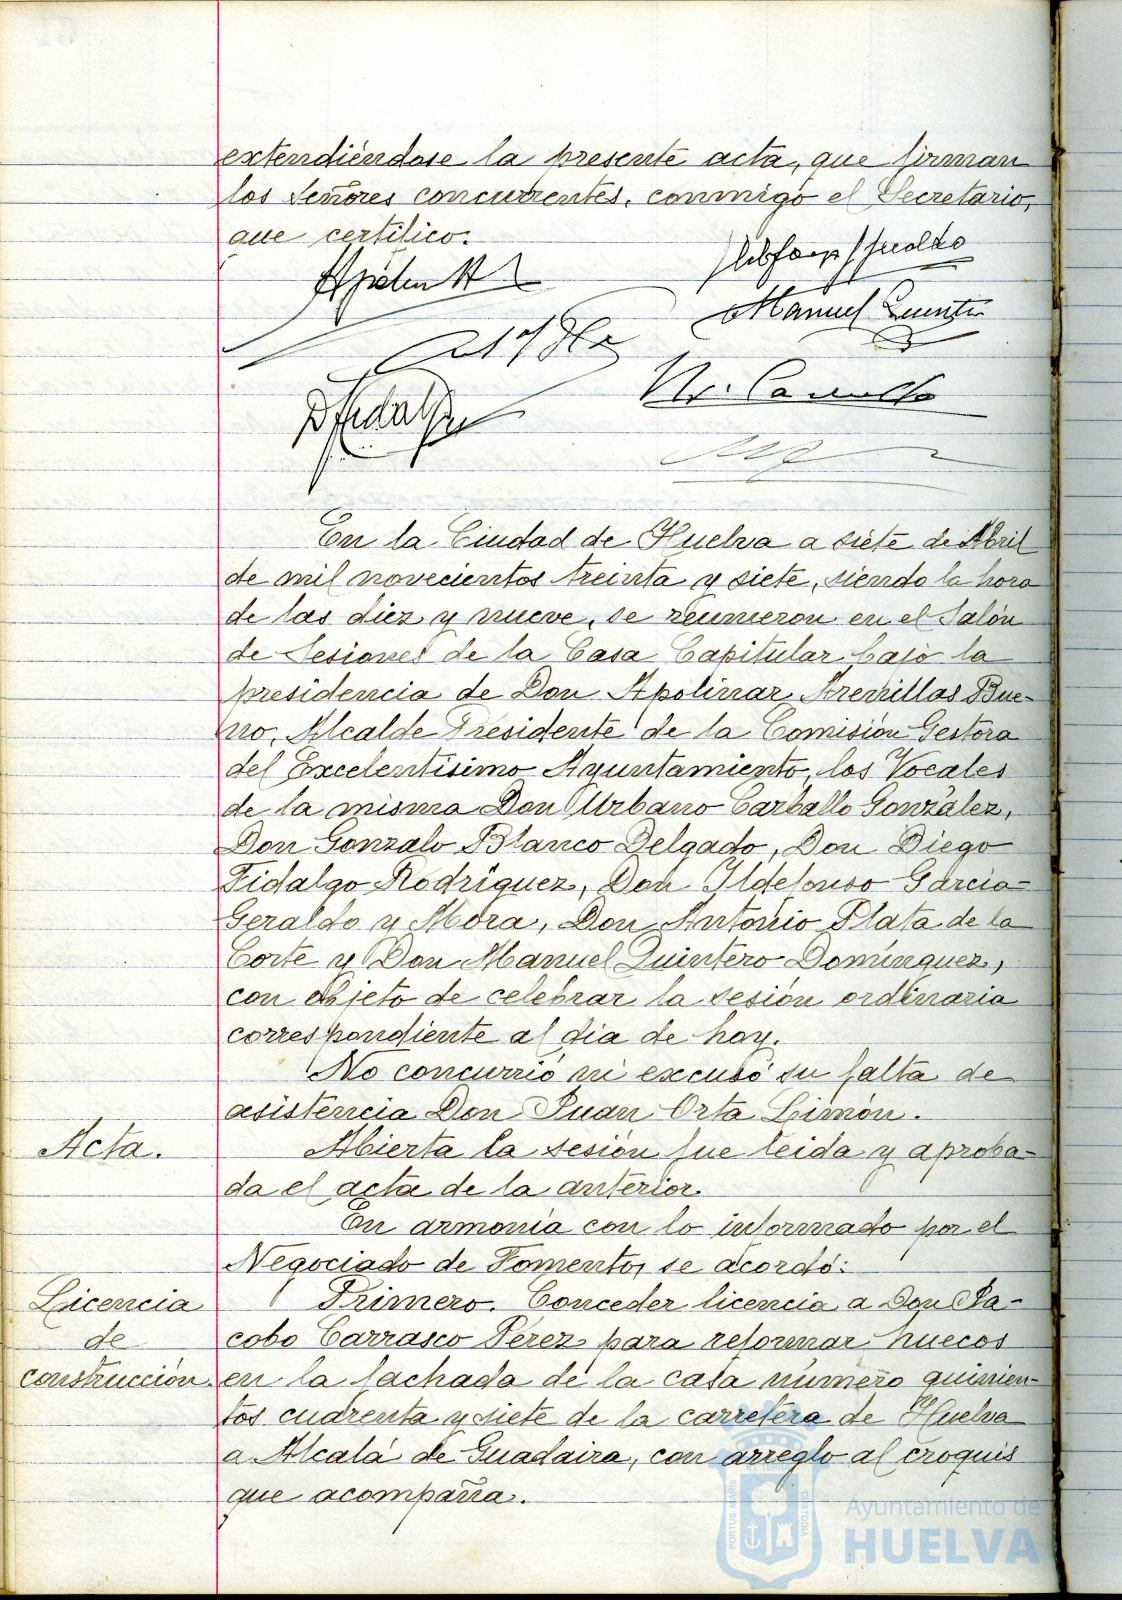 extendiéndose la presente acta, que firman
los Señores concurrentes, conmigo el Secretario,
que certifico.
Manuel Quintero
D Fidalgo
U. Carballo
En la Ciudad de Huelva a siete de Abril
de mil novecientos treinta y siete, siendo la hora
de las diez y nueve, se reunieron en el Salón
de Sesiones de la Casa Capitular bajo la
presidencia de Don Apolinar Arenillas Bue-
no, Alcalde Presidente de la Comisión Gestora
del Excelentísimo Ayuntamiento, los Vocales
de la misma Don Urbano Carballo González,
Don Gonzalo Blanco Delgado, Don Diego
Fidalgo Rodríguez, Don Ildefonso García-
Geraldo y Mora, Don Antonio Plata de la
Corte y Don Manuel Quintero Domínguez,
con objeto de celebrar la sesión ordinaria
correspondiente al día de hoy.
No concurrió ni excusó su falta de
asistencia Don Juan Orta Limón.
Acta.
Abierta la sesión fue leida y aproba-
da el acta de la anterior.
En armonía con lo informado por el
Negociado de Fomento, se acordó:
Licencia
de
construcción.
Primero. Conceder licencia a Don Ja-
cobo Carrasco Pérez para reformar huecos
en la fachada de la casa número quinien-
tos cuarenta y siete de la carretera de Huelva
a Alcalá de Guadaira, con arreglo al croquis
que acompaña.
PORTUS MARIS
ET TERRAE
CUSTODIA
Ayuntamiento de
HUELVA